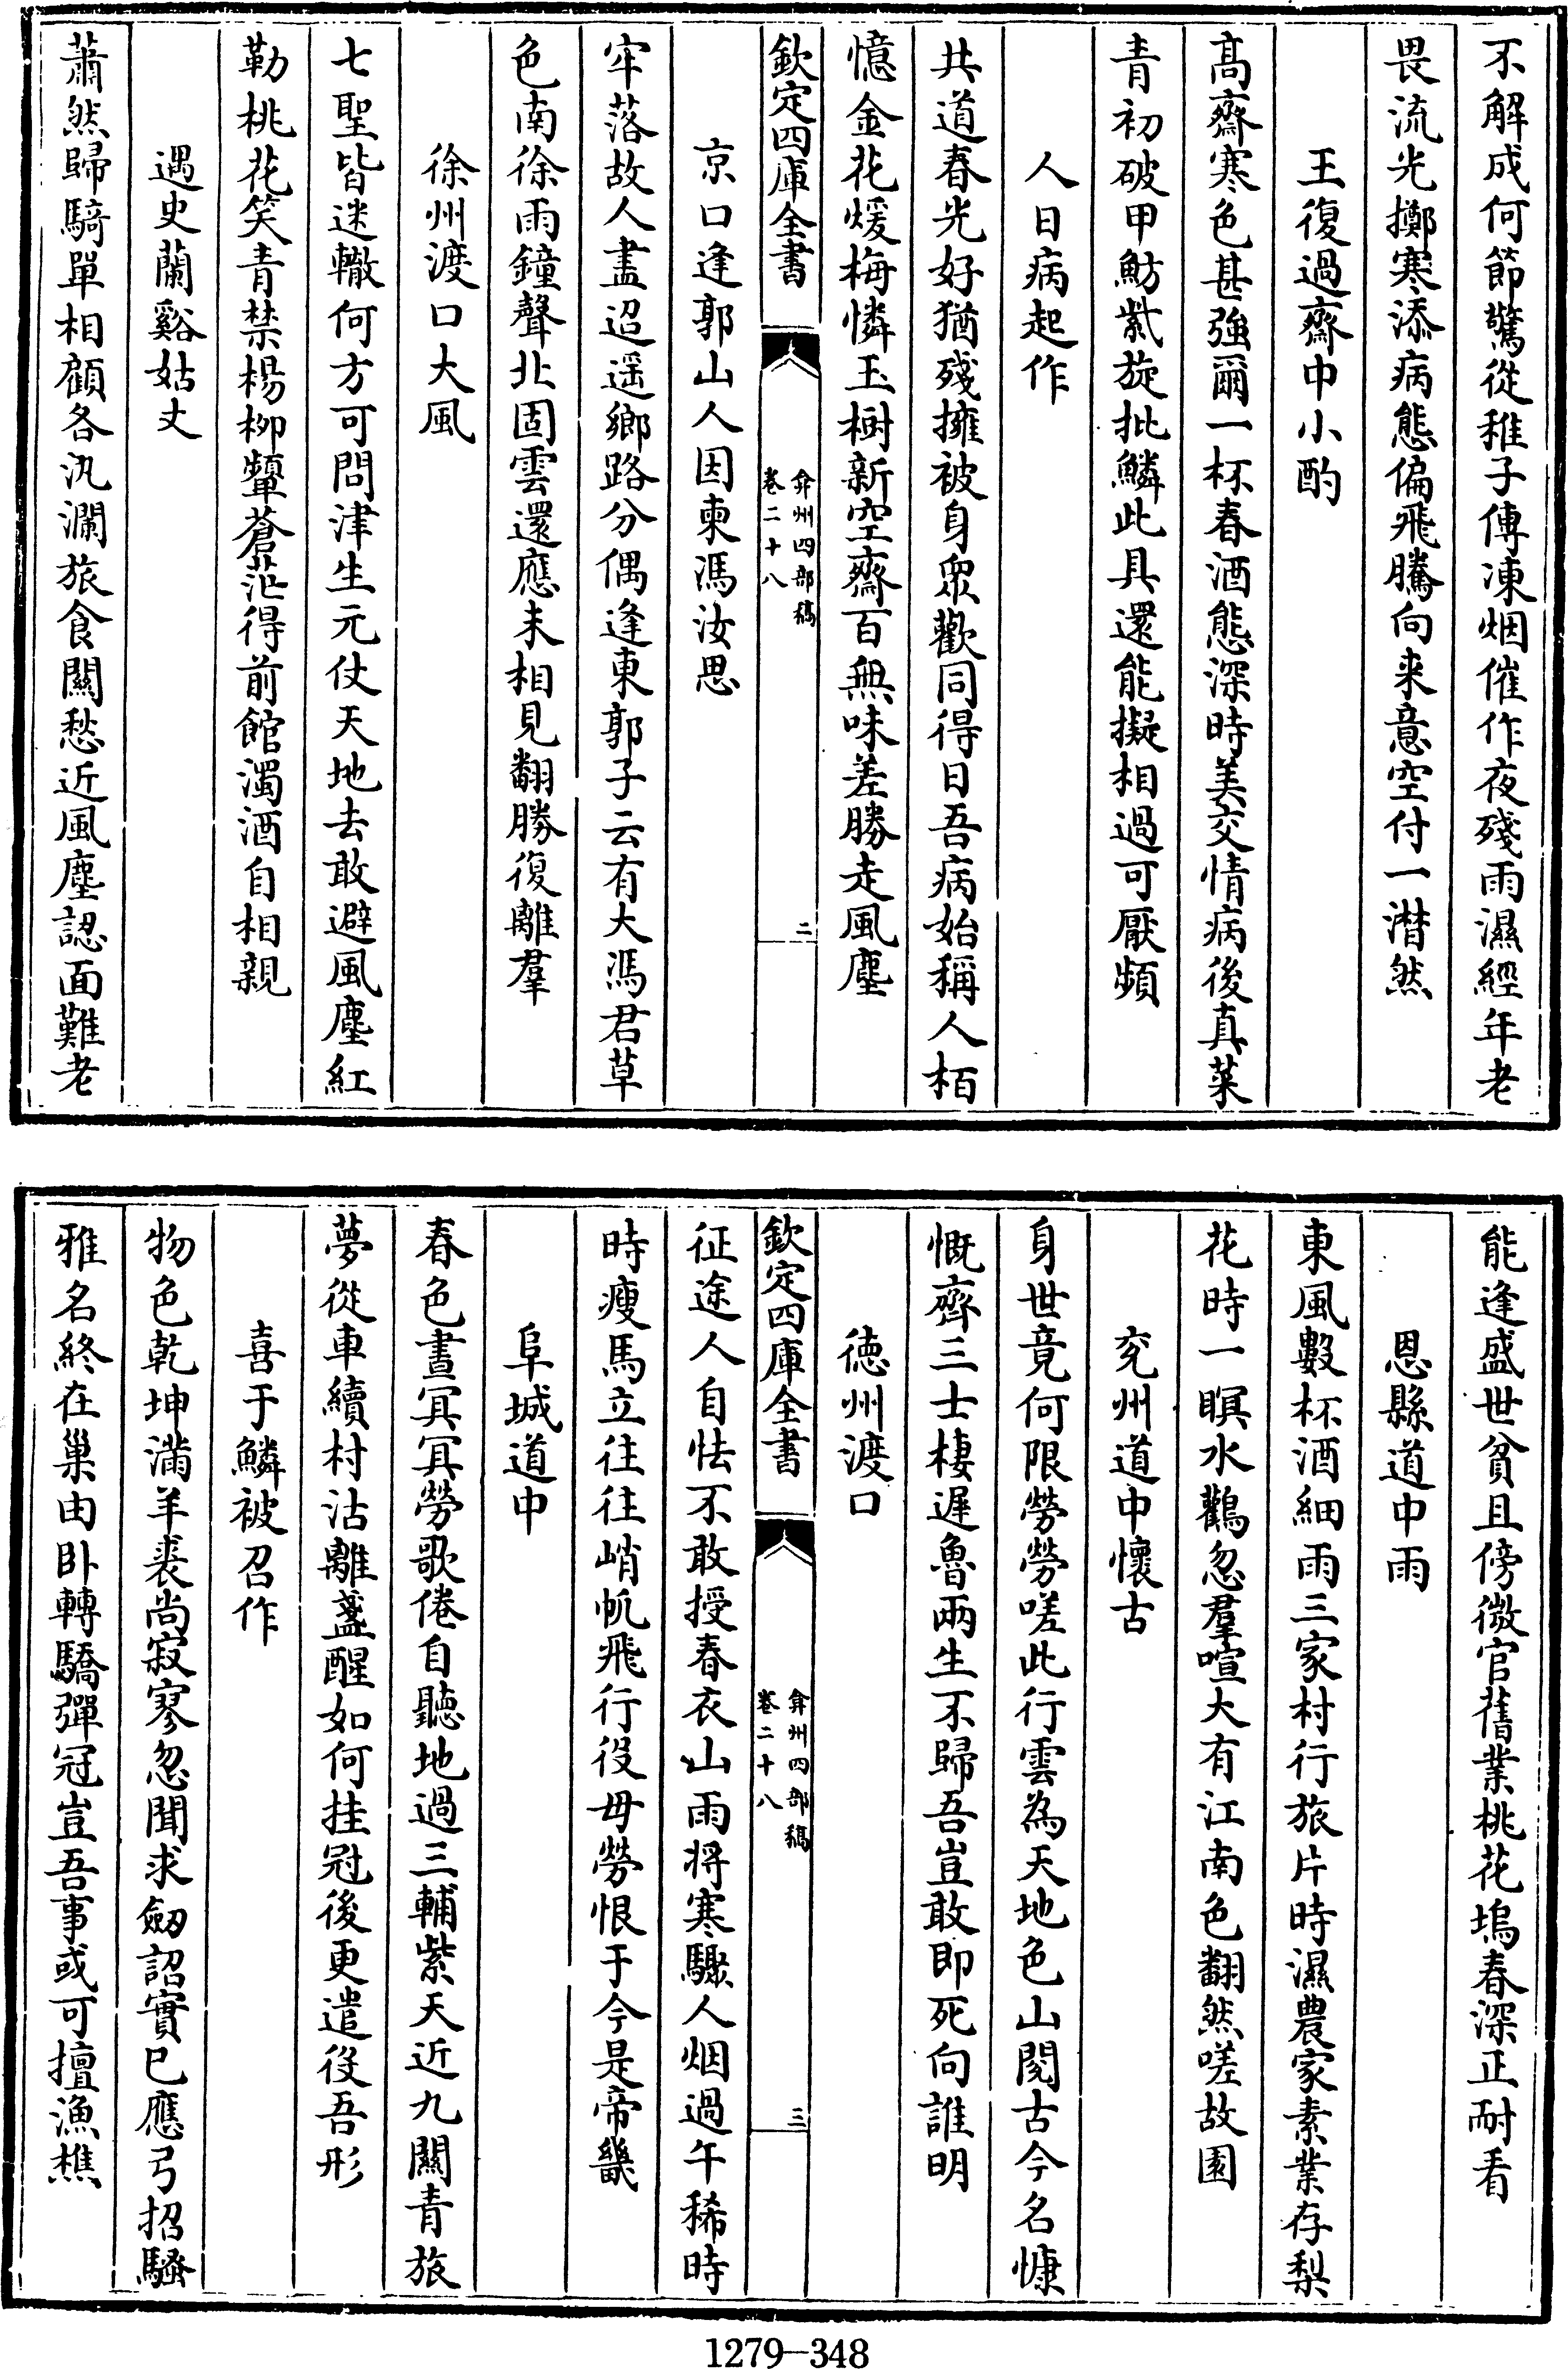 不解成何節驚從稚子傳凍烟催作夜殘雨濕經年老
畏流光擲寒添病態偏飛騰向来意空付一潸然
王復過齋中小酌
髙齋寒色甚強爾一杯春酒態深時美交情病後真菜
青初破甲魴紫旋批鱗此具還能擬相過可厭頻
人日病起作
共道春光好猶殘擁被身衆歡同得日吾病始稱人栢
憶金花煖梅憐玉樹新空齋百無味差勝走風塵
欽定四庫全書
弇州四部稿
卷二十八
二
京口逢郭山人因柬馮汝思
牢落故人盡迢遥鄉路分偶逢東郭子云有大馮君草
色南徐雨鐘聲北固雲還應未相見翻勝復離羣
徐州渡口大風
七聖皆迷轍何方可問津生元仗天地去敢避風塵紅
勒桃花笑青禁楊柳顰蒼茫得前館濁酒自相親
遇史蘭谿姑丈
蕭然歸騎單相顧各汍瀾旅食關愁近風塵認面難老
能逢盛世貧且傍微官舊業桃花塢春深正耐看
恩縣道中雨
東風數杯酒細雨三家村行旅片時濕農家素業存梨
花時一瞑水鸛忽羣喧大有江南色翻然嗟故園
兖州道中懷古
身世竟何限勞勞嗟此行雲為天地色山閱古今名慷
慨齊三士棲遲魯兩生不歸吾豈敢即死向誰明
德州渡口
欽定四庫全書
弇州四部稿
卷二十八
三
征途人自怯不敢授春衣山雨将寒驟人烟過午稀時
時瘦馬立往往峭帆飛行役毋勞恨于今是帝畿
阜城道中
春色晝冥冥勞歌倦自聽地過三輔紫天近九關青旅
夢從車續村沽離盞醒如何挂冠後更遣役吾形
喜于鱗被召作
物色乾坤滿羊裘尚寂寥忽聞求劔詔實已應弓招騷
雅名終在巢由卧轉驕彈冠豈吾事或可擅漁樵
1279-348